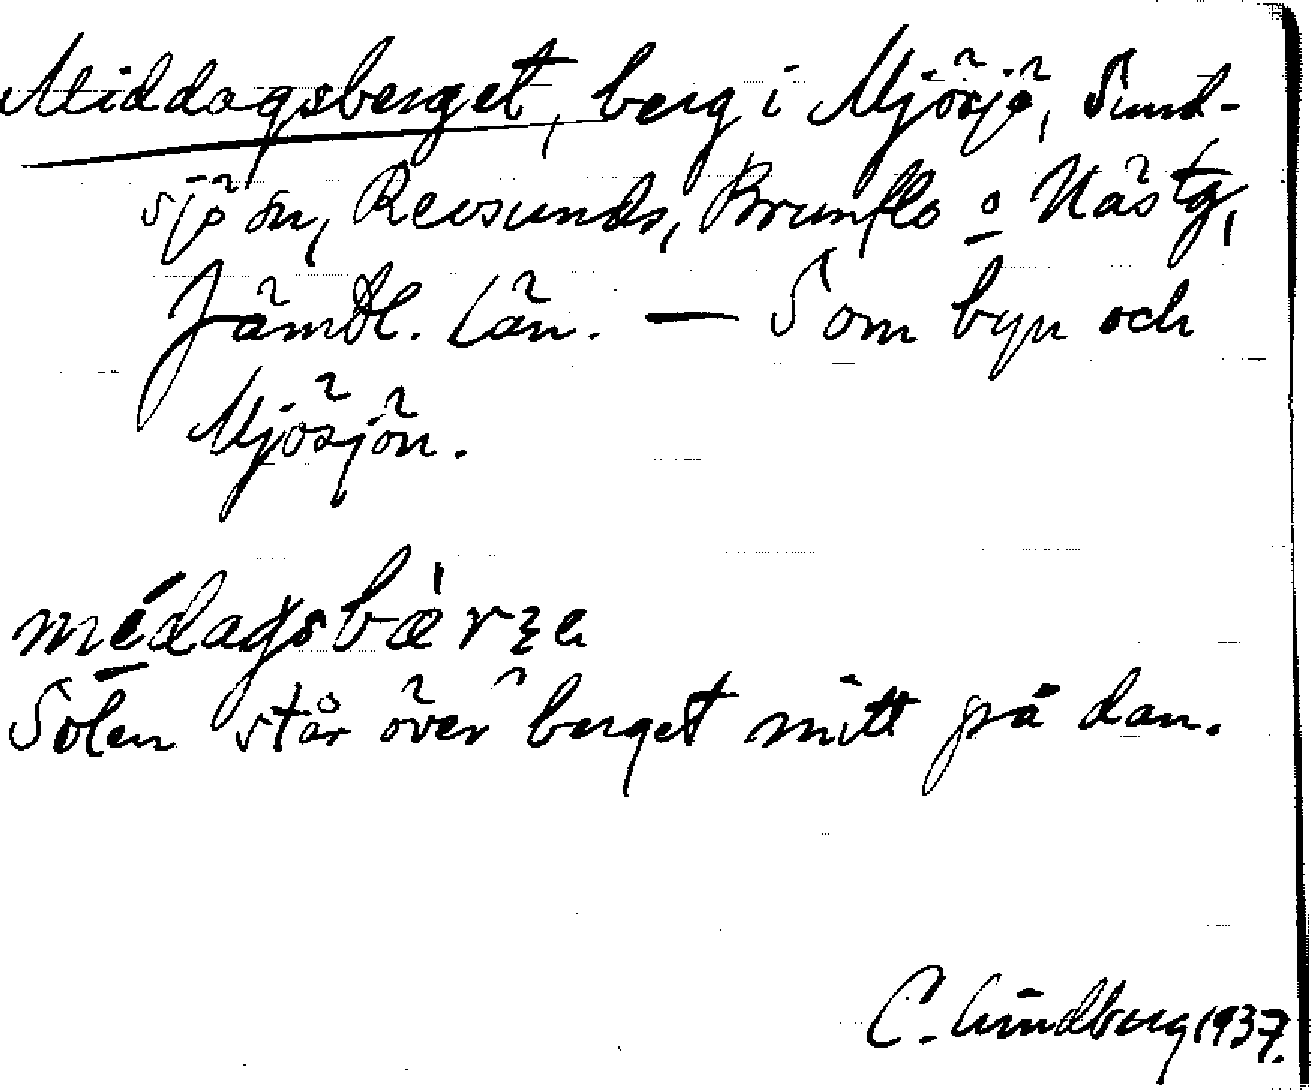 Middagsberget, berg i Mjösjö, Sund-
sjön, Revsunds, Brunflo o Näs tg,
Jämtl. län. — Som byn och
Mjösjön.
médagsbæ̀rʒa
Solen står över berget mitt på dan.
C. Lundberg 1937.